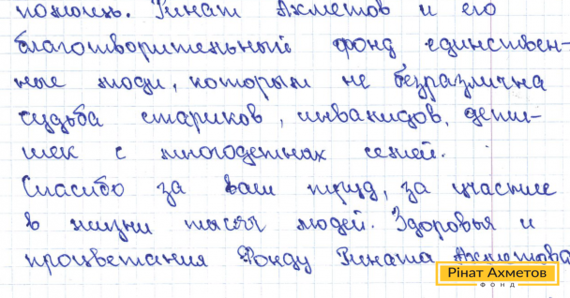 помощь. Ринат Ахметов и его
благотворительный фонд единствен-
ные люди, которым не безразлична
судьба стариков, инвалидов, дети-
шек с многодетных семей.
Спасибо за ваш труд, за участие
в жизни тысяч людей. Здоровья и
процветания Фонду Рината Ахметова
Рінат Ахметов
ФОНД